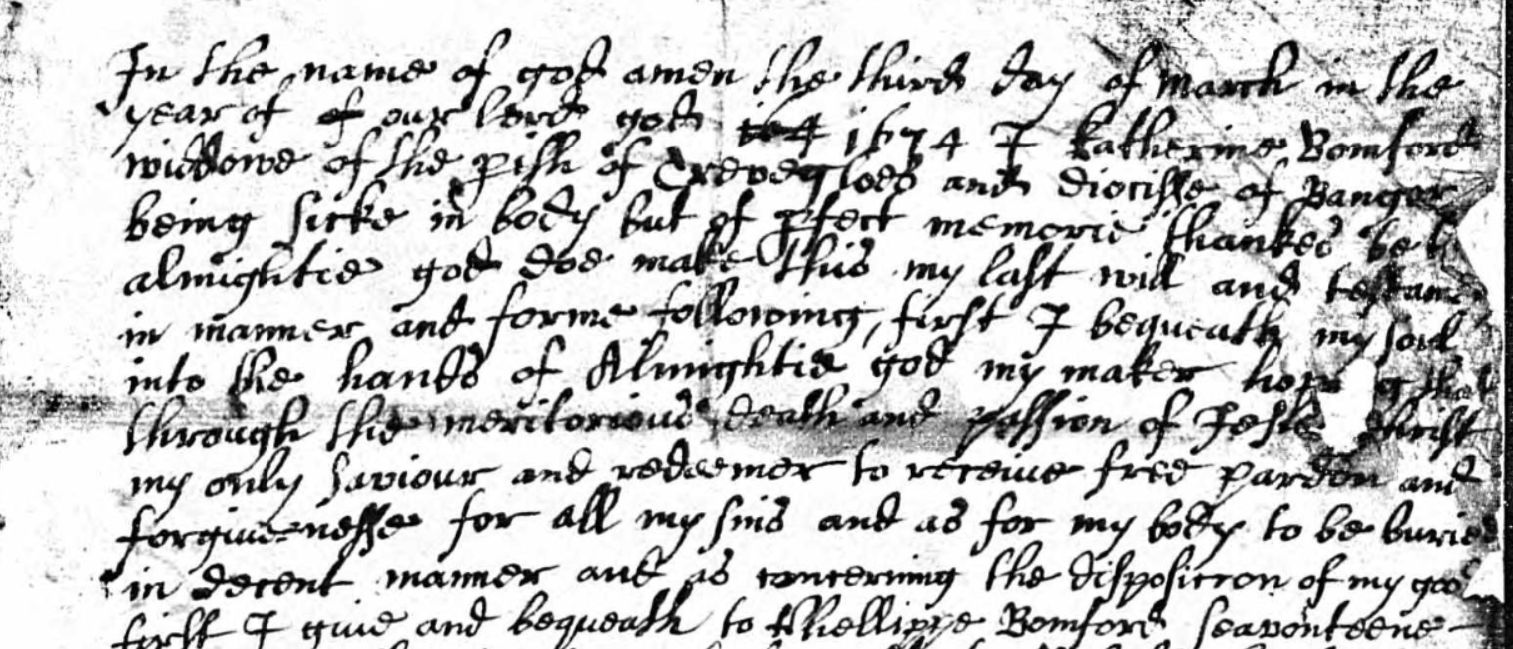 In the name of god amen the third day of march in the
year of of our lord god 1674 I Katherine Bomford
widdowe of the pish of and diocisse of Bangor
being sicke in body but of pfect memorie thankes be
almightie god doe make this my last will and testame
in manner and forme following, first I bequeath my soul
into the hands of Almightie god my maker that
through the meritorious death and passion of Jesus Christ
my only saviour and redeemer to receive free pardon and
forgivenesse for all my sins and as for my body to be buried
in decent manner and as concerning the disposicion of my goo
first I give and bequeath to Phellippe Bomford seavonteene